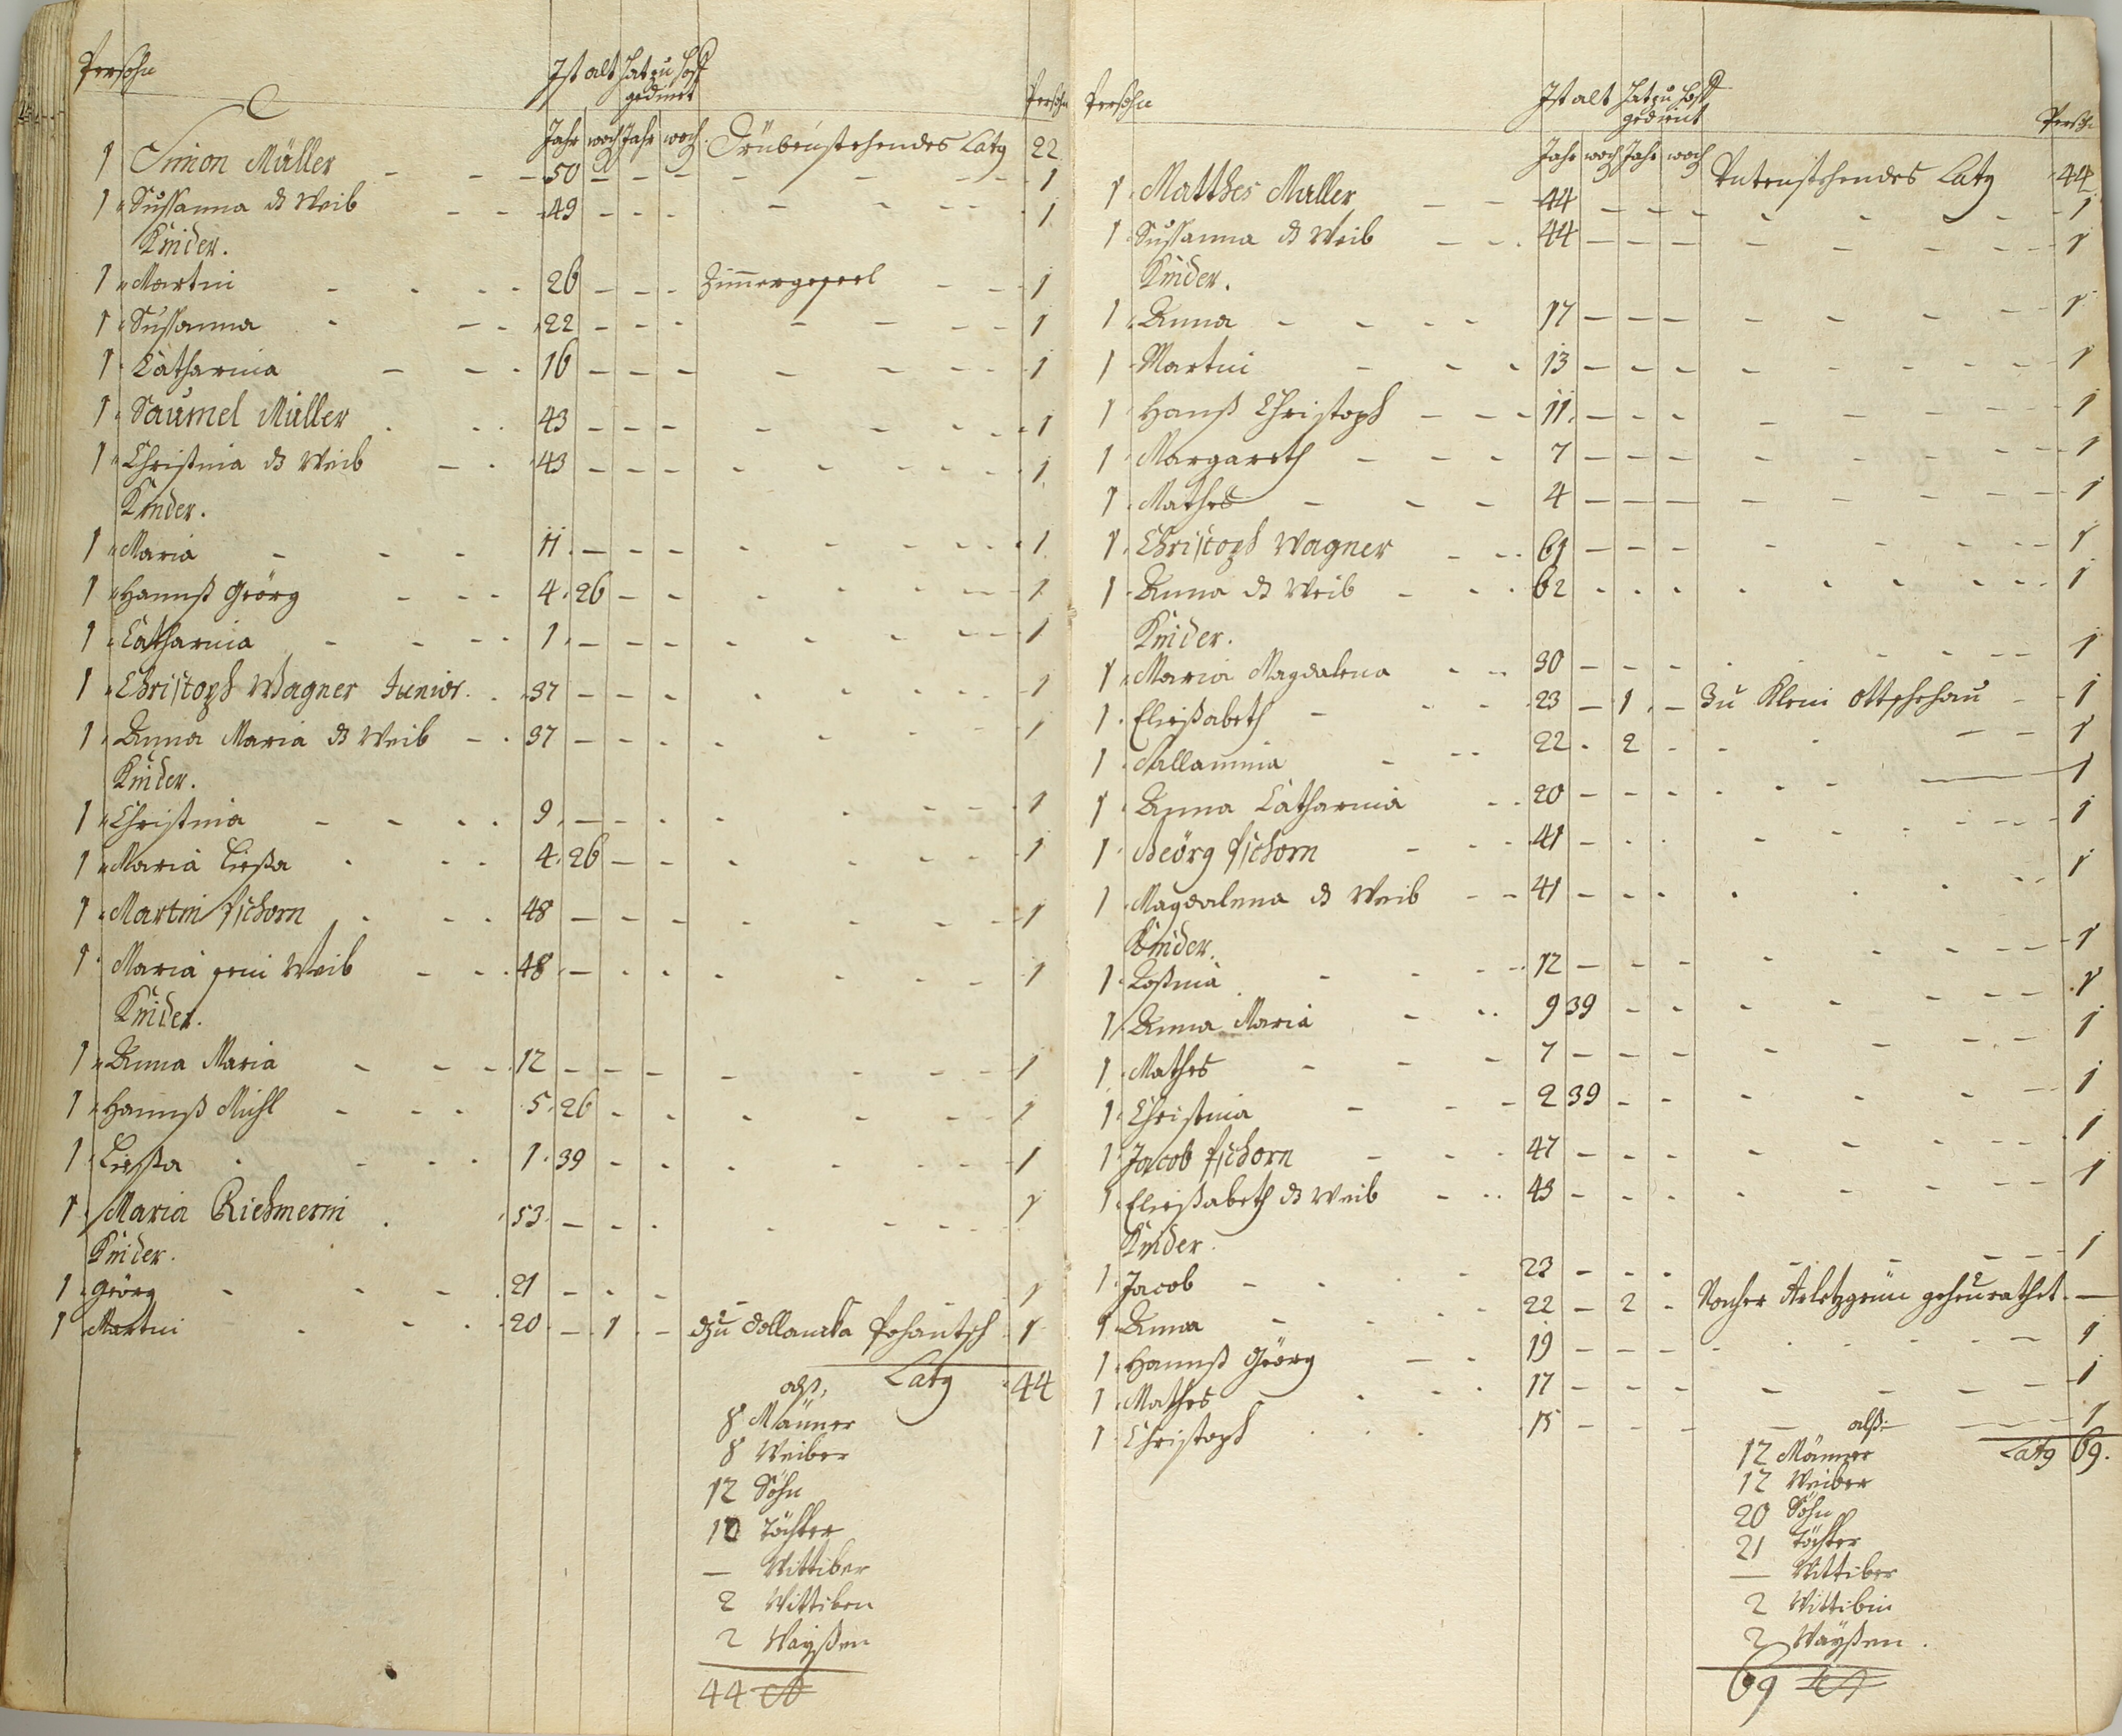 Persohn Ist alt hat zu hoff Persohn
gedient
Jahr woch Jahr woch Drübenstehendes Latg 22
1 Simon Müller 50 – – – 1
1 Sussanna ds Weib 49 – – – 1
Kinder.
1 Martin 26 – – – Zimmergesel 1
1 Sussanna 22 – – – 1
1 Catharina 16 – – – 1
1 Saumel Müller 43 – – – 1
1 Christina ds Weib 43 – – – 1
Kinder.
1 Maria 11 – – – 1
1 Hannß Geörg 4 26 – – 1
1 Catharina 1 – – – 1
1 Christoph Wagner Junior 37 – – – 1
1 Anna Maria ds Weib 37 – – – 1
Kinder.
1 Christina 9 – – – 1
1 Maria Ließa 4 26 – – 1
1 Martin Pschorn 48 – – – 1
1 Maria sein Weib 48 – – – 1
Kinder.
1 Anna Maria 12 – – – 1
1 Hannß Michl 5 26 – – 1
1 Ließa 1 39 – – 1
1 Maria Richmerin 53 – – – 1
Kinder.
1 Geörg 21 – – – 1
1 Martin 20 – 1 – dzu 1
Latg 44
alß,
8 Männer
8 Weiber
12 Söhn
12 Töchter
— Wittiber
2 Wittiben
2 Wayßen
44
Persohn Ist alt hat zu hoff Persohn
gedient
Jahr woch Jahr woch Entenstehendes Latg 44
1 Matthes Müller 44 – – – 1
1 Sussanna ds Weib 44 – – – 1
Kinder.
1 Anna 17 – – – 1
1 Martin 13 – – – 1
1 Hanß Christoph 11 – – – 1
1 Margareth 7 – – – 1
1 Mathes 4 – – – 1
1 Christoph Wagner 61 – – – 1
1 Anna ds Weib 62 – – – 1
Kinder.
1 Maria Magdalena 30 – – – 1
1 Eließabeth 23 – 1 – Zu Klein Ottschehau 1
1 22 – 2 – 1
1 Anna Catharina 20 – – – 1
1 Geörg Pschorn 41 – – – 1
1 Magdalena ds Weib 41 – – – 1
Kinder.
1 Roßina 12 – – – 1
1 Anna Maria 9 39 – – 1
1 Mathes 7 – – – 1
1 Christina 2 39 – – 1
1 Jacob Pschorn 47 – – – 1
1 Eließabeth ds Weib 43 – – – 1
Kinder.
1 Jacob 23 – – – 1
1 Anna 22 – 2 – Nacher Arletzgrün geheurathet —
1 Hannß Geörg 19 – – – 1
1 Mathes 17 – – – 1
1 Christoph 15 – – – 1
alß: Latg 69.
12 Männer
12 Weiber
20 Söhn
21 Töchter
— Wittiber
2 Wittibin
2 Wayßen.
69